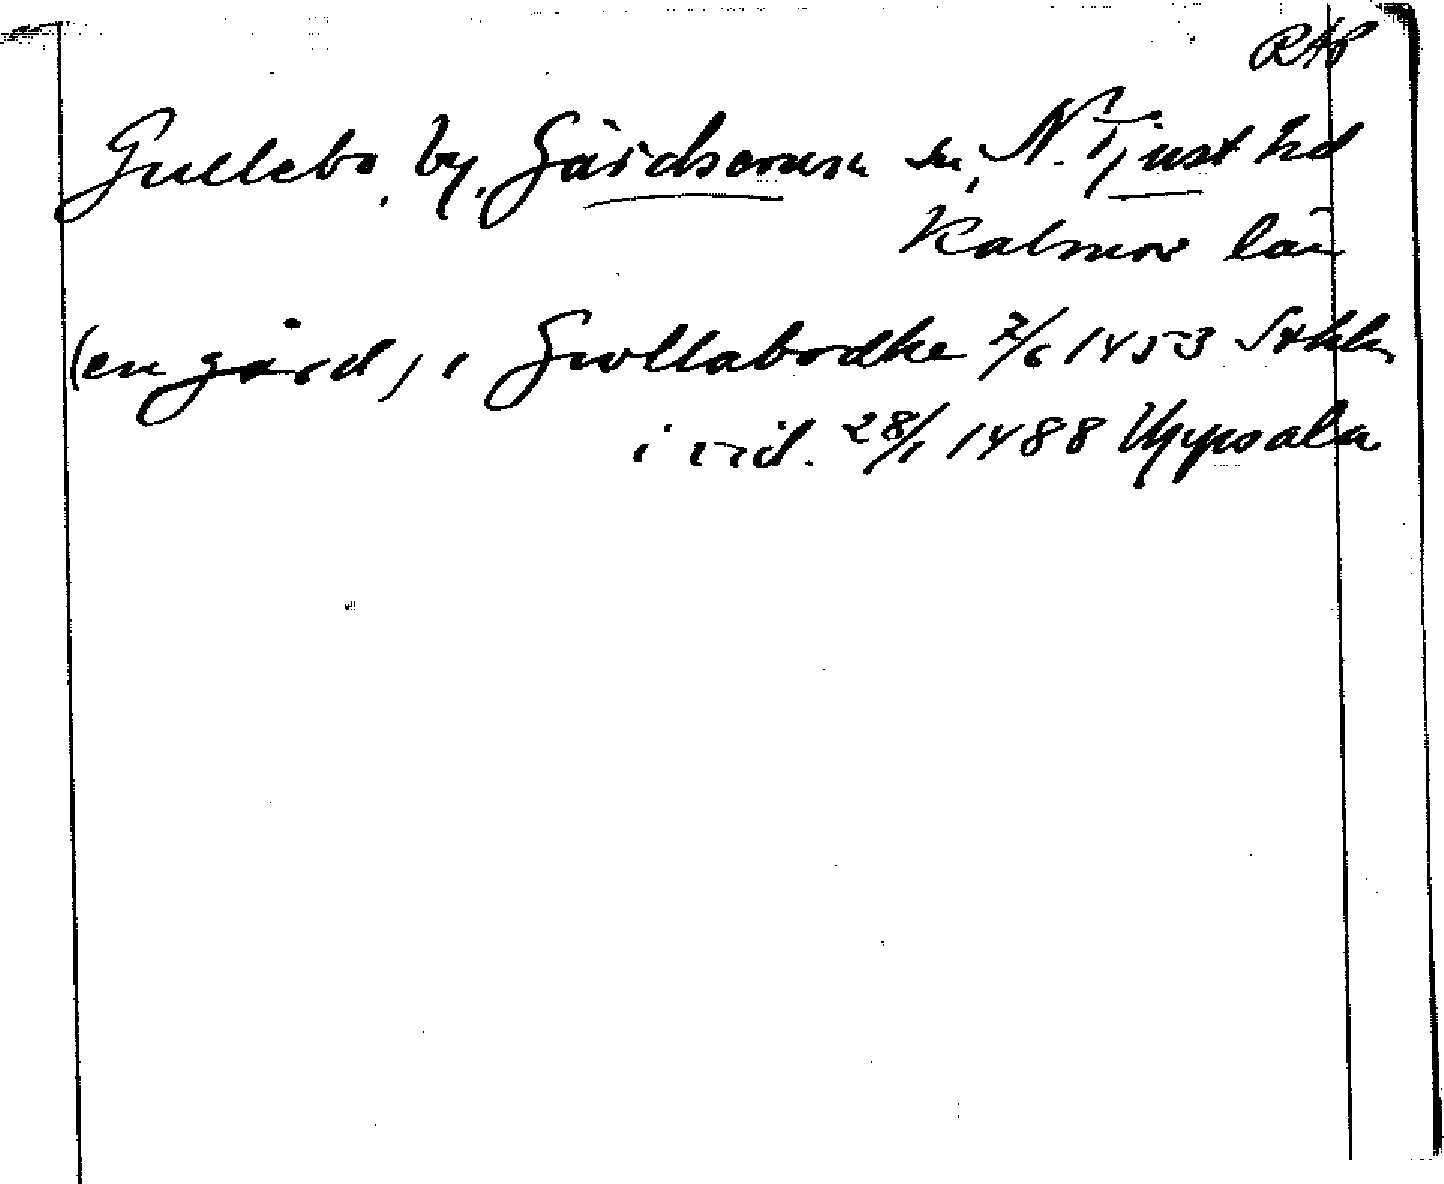 RAP
Gullebo, by, Gärdserums sn, N. Tjust hd
Kalmar län
(en gård) i Gwllabodhe 2/6 1453 Sthlm
i vid. 28/1 1488 Uppsala